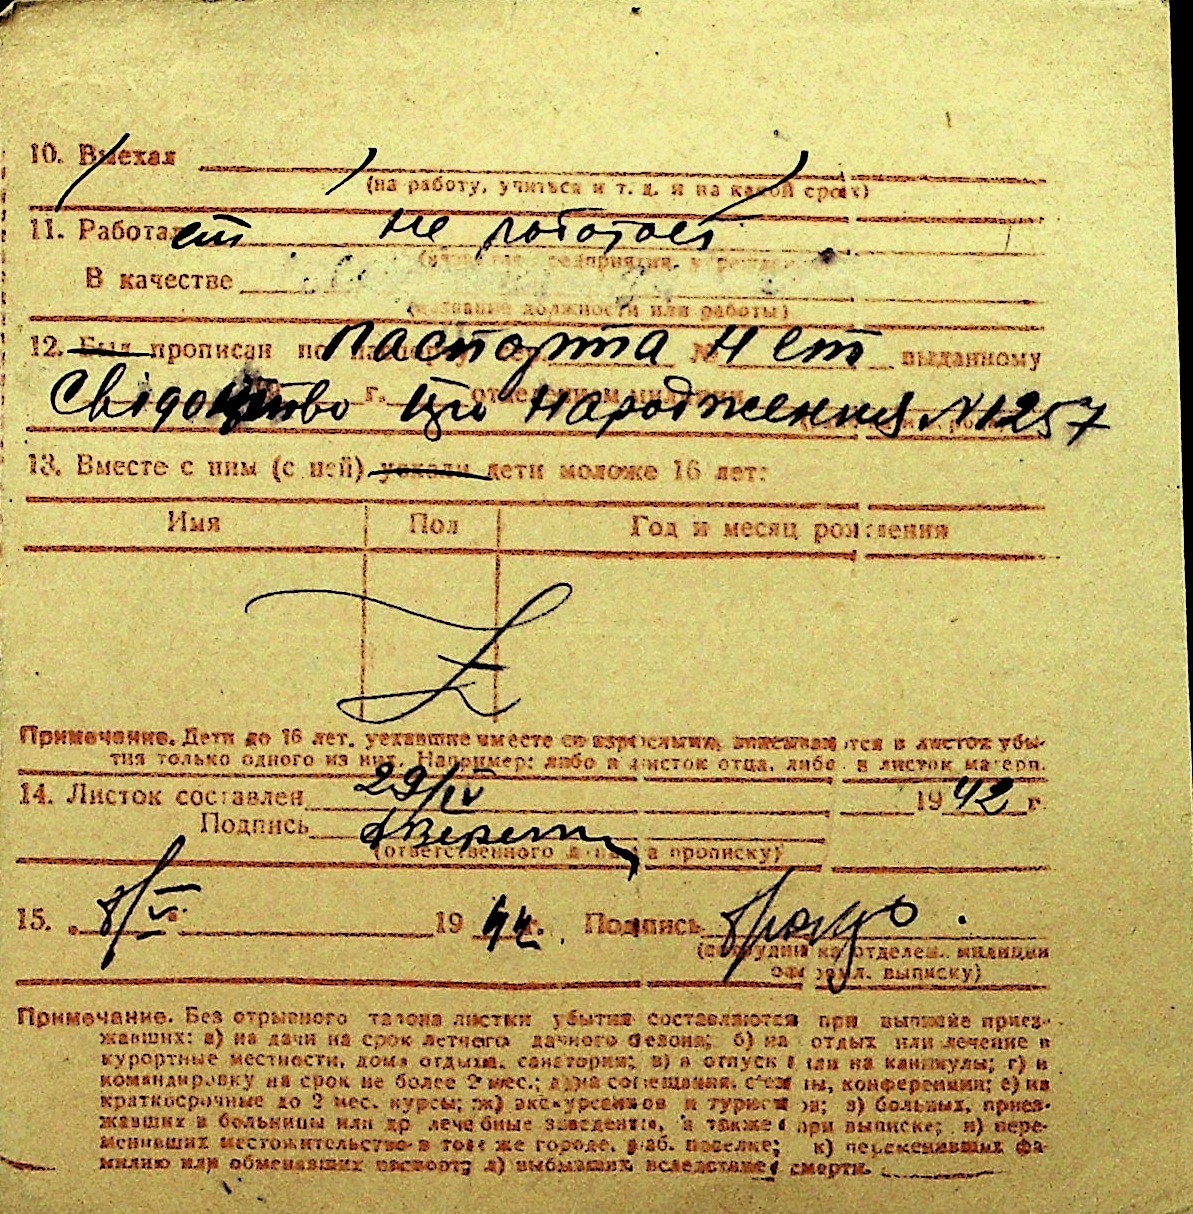 10. Выехал
(на работу, учиться и т. д. и на какой срок)
11. Работает не работает
(название предприятия, учреждения)
В качестве
(название должности или работы)
12. Был прописан по паспорта нет № выданному
Свідоцтво про народження N 1257
г. отделением милиции
13. Вместе с ним (с ней) уехали дети моложе 16 лет:
Имя Пол Год и месяц рождения
Примечание. Дети до 16 лет, уехавшие вместе со взрослыми, вписываются в листок убы-
тия только одного из них. Например: либо в листок отца, либо в листок матери.
14. Листок составлен 29/IV 1942 г.
Подпись
(ответственного лица за прописку)
15. 8/V 1942 г. Подпись
(сотрудника отделен. милиции
оформл. выписку)
Примечание. Без отрывного талона листки убытия составляются при выписке приез-
жавших: а) на дачи на срок летнего дачного сезона; б) на отдых или лечение в
курортные местности, дома отдыха, санатории; в) в отпуск или на каникулы; г) в
командировку на срок не более 2 мес.; д) на совещания, съезды, конференции; е) на
краткосрочные до 2 мес. курсы; ж) экскурсантов и туристов; з) больных, приез-
жавших в больницы или др лечебные заведения, а также при выписке; и) пере-
менивших местожительство в том же городе, раб. поселке; к) переменивших фа-
милию или обменявших паспорт; л) выбывших вследствие смерти.